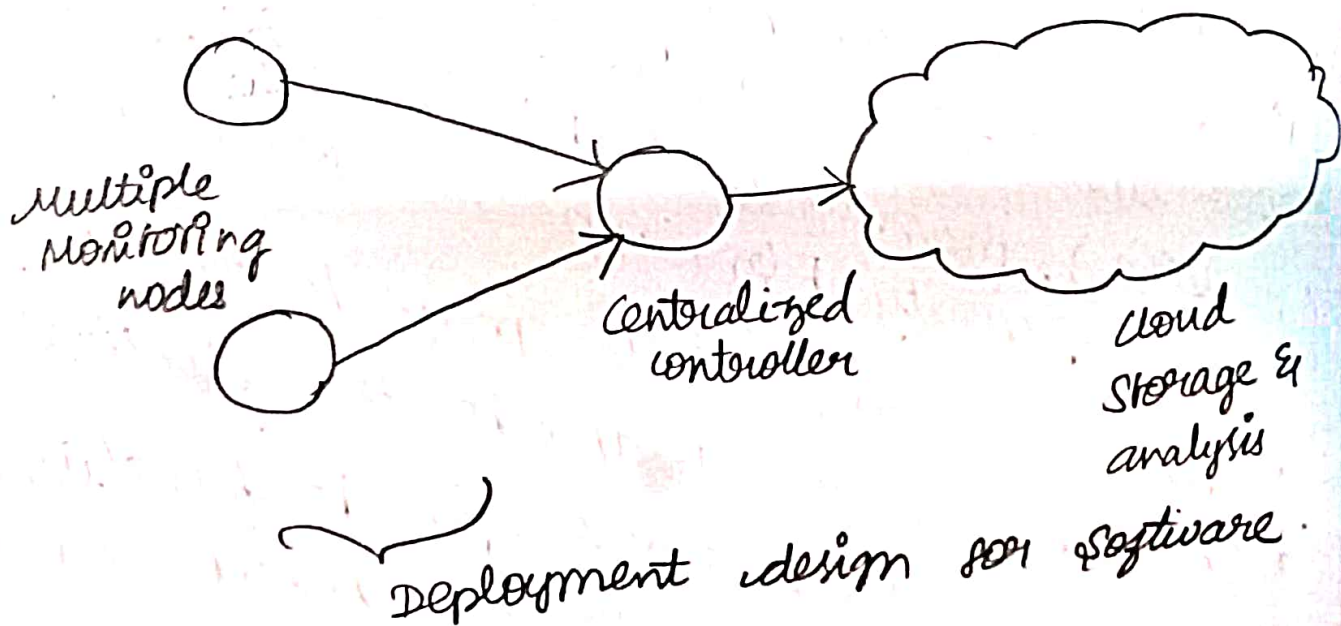 Multiple
Monitoring
nodes
Centralized
controller
Cloud
Storage &
analysis
Deployment design for software.